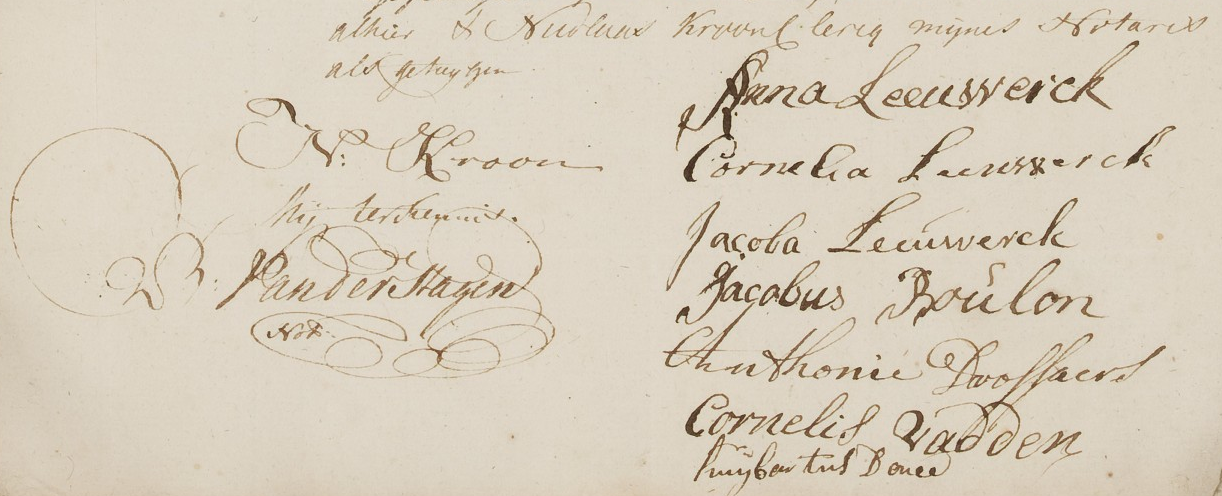 alhier & Nicolaas Kroon Clercq mijnes Notaris
als getuygen
N: Kroon
Mij ter kennis.
B: Van der Hagen
Not:
Anna Leeuwerck
Cornelia Leeuwerck
Jacoba Leeuwerck
Jacobus Boúlon
Anthonie Drossaers
Cornelis Vadden
huijbertus Bonee